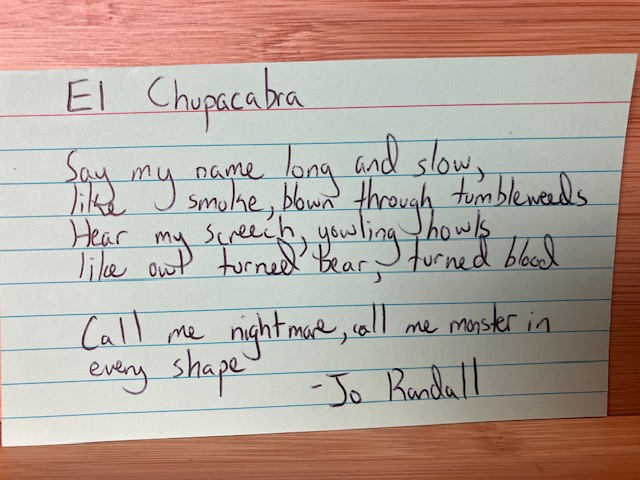 El Chupacabra
Say my name long and slow,
like smoke, blown through tumbleweeds
Hear my screech, yowling howls
like owl turned bear, turned blood
Call me nightmare, call me monster in
every shape
-Jo Randall